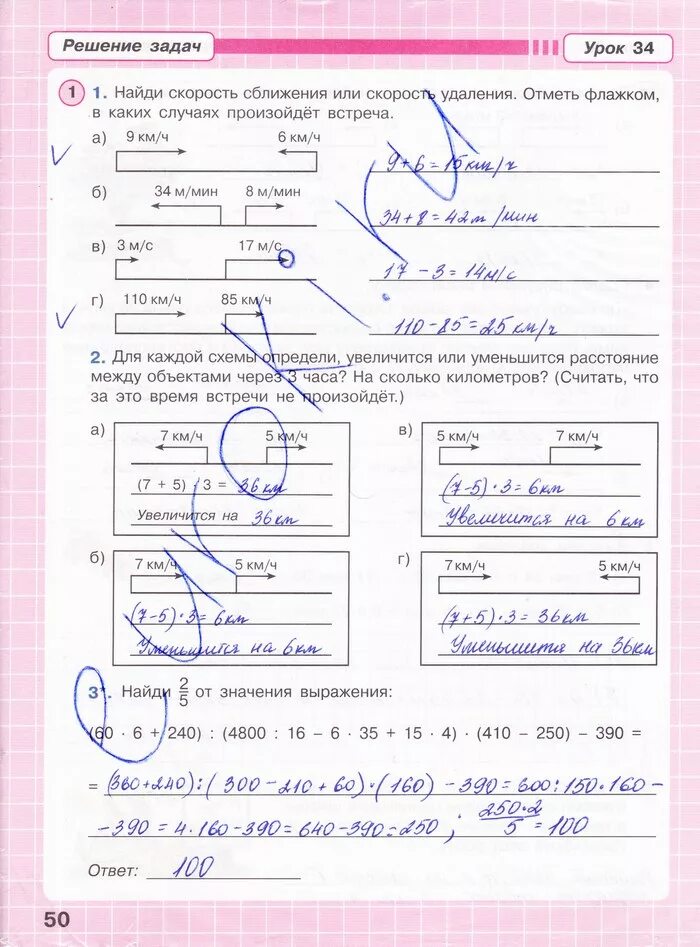 Решение задач
Урок 34
1 1. Найди скорость сближения или скорость удаления. Отметь флажком,
в каких случаях произойдёт встреча.
а) 9 км/ч 6 км/ч
9 + 6 = 15 км/ч
б) 34 м/мин 8 м/мин
34 + 8 = 42 м/мин
в) 3 м/с 17 м/с
17 - 3 = 14 м/с
г) 110 км/ч 85 км/ч
110 - 85 = 25 км/ч
2. Для каждой схемы определи, увеличится или уменьшится расстояние
между объектами через 3 часа? На сколько километров? (Считать, что
за это время встречи не произойдёт.)
а) 7 км/ч 5 км/ч
(7 + 5) · 3 = 36 км
Увеличится на 36 км
в) 5 км/ч 7 км/ч
(7-5) · 3 = 6 км
Увеличится на 6 км
б) 7 км/ч 5 км/ч
(7-5) · 3 = 6 км
Уменьшится на 6 км
г) 7 км/ч 5 км/ч
(7+5) · 3 = 36 км
Уменьшится на 36 км
3*. Найди 2/5 от значения выражения:
(60 · 6 + 240) : (4800 : 16 – 6 · 35 + 15 · 4) · (410 – 250) – 390 =
= (360+240) : (300-210+60) · (160) - 390 = 600 : 150 · 160 -
- 390 = 4 · 160 - 390 = 640 - 390 = 250 ; 250 · 2 / 5 = 100
Ответ: 100
50